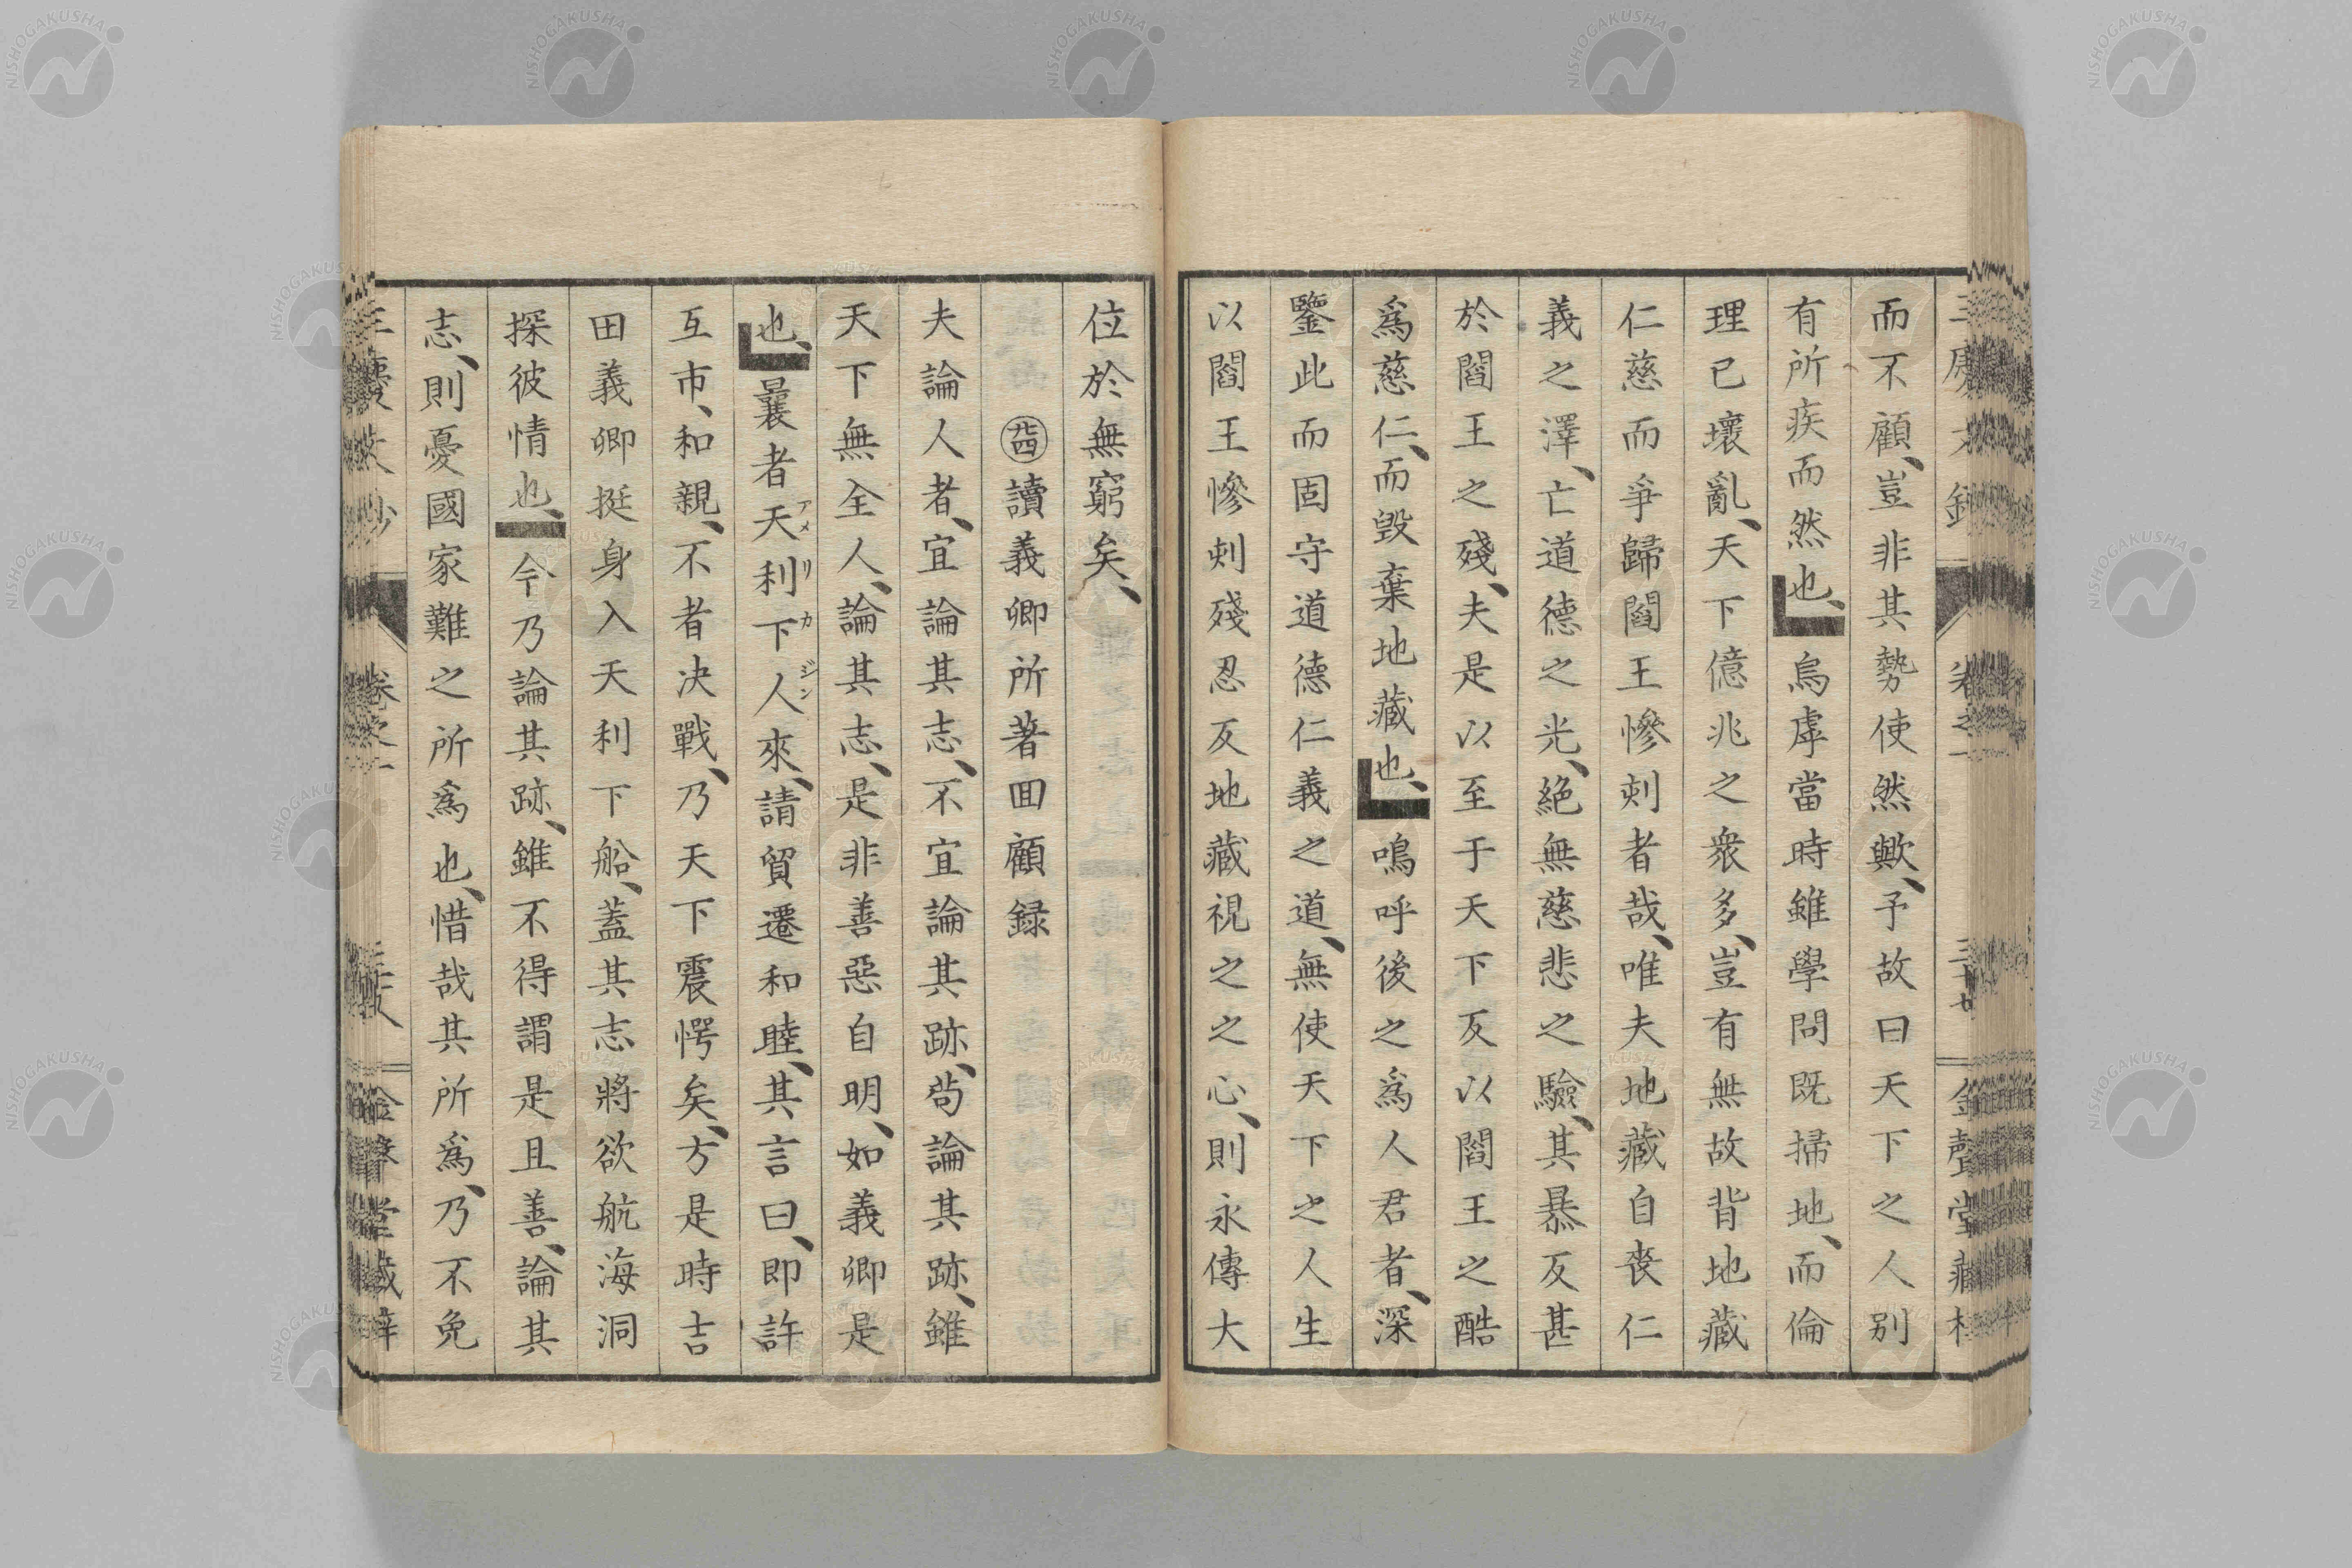 而不顧、豈非其勢使然歟、予故曰天下之人别
有所疾而然也、烏虖當時雖學問既掃地、而倫
理已壞亂、天下億兆之衆多、豈有無故背地藏
仁慈而爭歸閻王慘刺者哉、唯夫地藏自喪仁
義之澤、亡道德之光、絕無慈悲之驗、其暴反甚
於閻王之殘、夫是以至于天下反以閻王之酷
爲慈仁、而毀棄地藏也、鳴呼後之爲人君者、深
鑒此而固守道德仁義之道、無使天下之人生
以閻王慘刺殘忍反地藏視之之心、則永傳大
位於無窮矣、
讀義卿所著回顧録
夫論人者、宜論其志、不宜論其跡、苟論其跡、雖
天下無全人、論其志、是非善惡自明、如義卿是
也、曩者天利下人來、請貿遷和睦、其言曰、即許
アメリカジン
互市、和親、不者决戰、乃天下震愕矣、方是時吉
田義卿挺身入天利下船、蓋其志將欲航海洞
探彼情也、今乃論其跡、雖不得謂是且善、論其
志、則憂國家難之所爲也、惜哉其所爲、乃不免
NISHOGAKUSHA